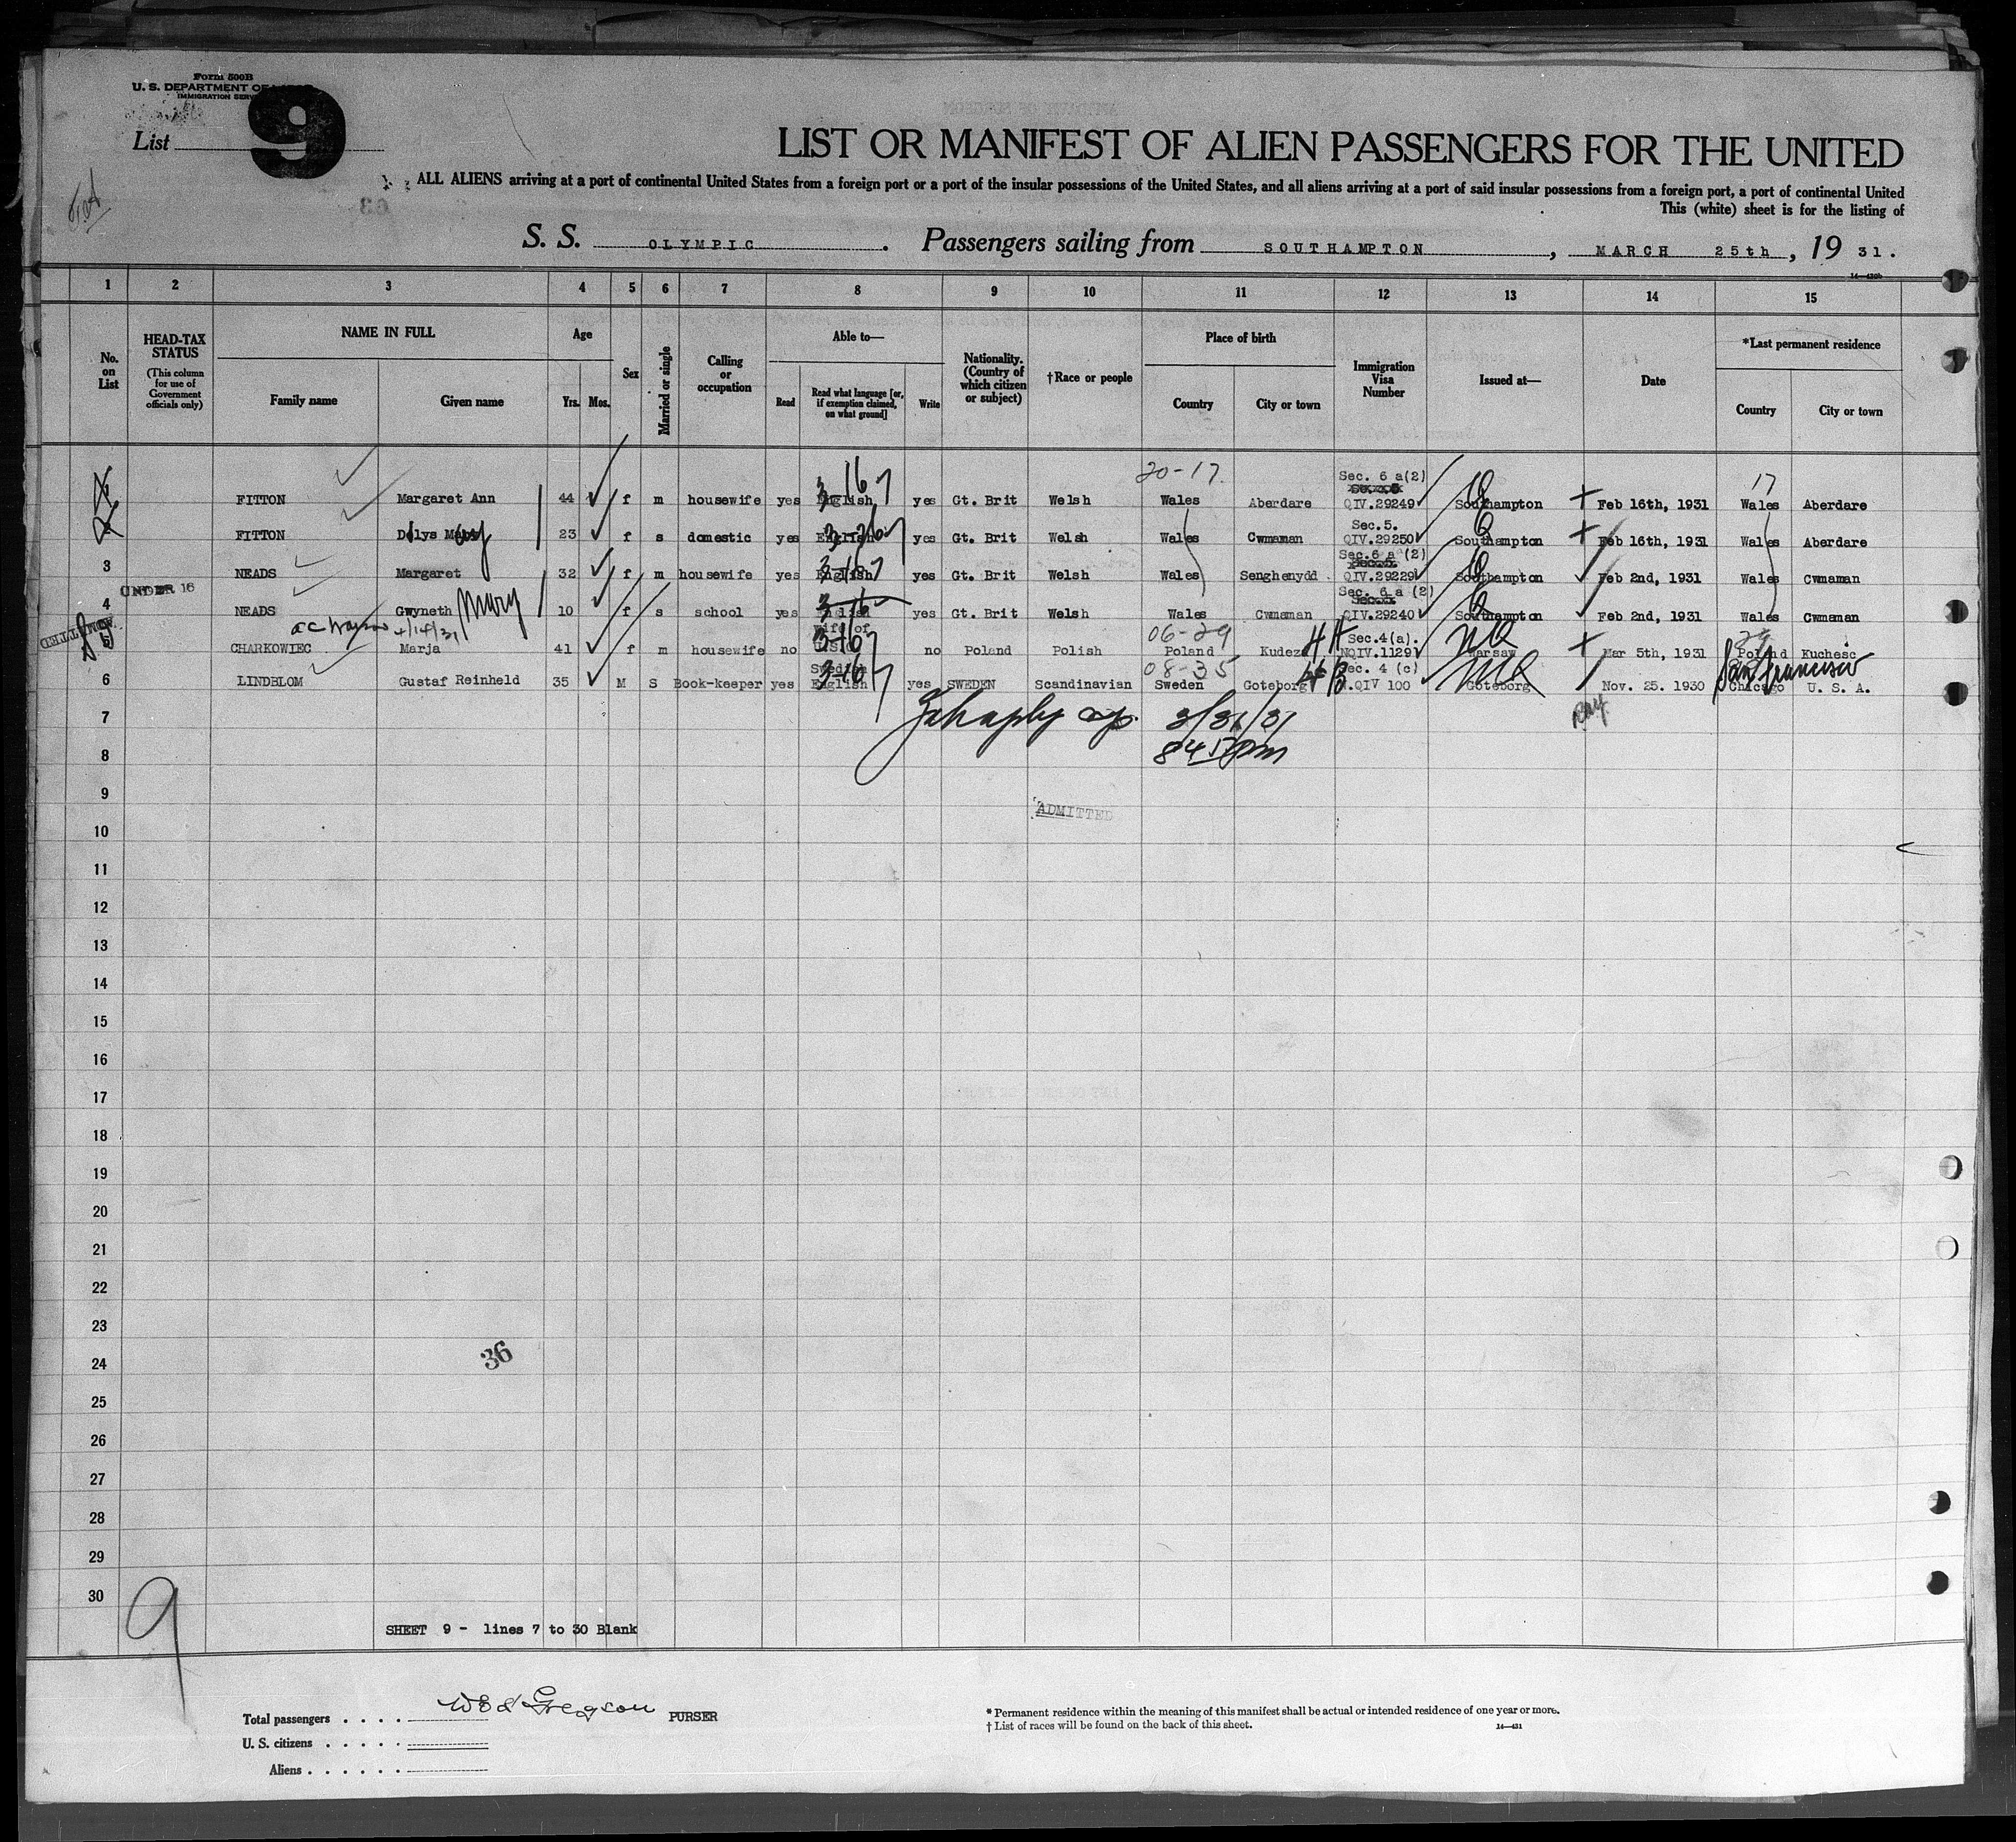 Form 500B
U. S. DEPARTMENT OF
IMMIGRATION
List 9
LIST OR MANIFEST OF ALIEN PASSENGERS FOR THE UNITED
ALL ALIENS arriving at a port of continental United States from a foreign port or a port of the insular possessions of the United States, and all aliens arriving at a port of said insular possessions from a foreign port, a port of continental United
This (white) sheet is for the listing of
63
S. S. OLYMPIC . Passengers sailing from SOUTHAMPTON , MARCH 25th , 19 31.
1 2 3 4 5 6 7 8 9 10 11 12 13 14 15
No. on List
HEAD-TAX STATUS
(This column for use of Government officials only)
NAME IN FULL
Family name Given name
Age
Yrs. Mos.
Sex
Married or single
Calling or occupation
Able to—
Read
Read what language [or, if exemption claimed, on what ground]
Write
Nationality. (Country of which citizen or subject)
†Race or people
Place of birth
Country City or town
Immigration Visa Number
Issued at—
Date
*Last permanent residence
Country City or town
20-17 Sec. 6 a(2) 17
FITTON Margaret Ann 44 f m housewife yes English yes Gt. Brit Welsh Wales Aberdare QIV.29249 Southampton Feb 16th, 1931 Wales Aberdare
Sec.5.
FITTON 23 f s domestic yes English yes Gt. Brit Welsh Wales Cwmaman QIV.29250 Southampton Feb 16th, 1931 Wales Aberdare
Sec.6 a (2)
3 NEADS Margaret 32 f m housewife yes English yes Gt. Brit Welsh Wales Senghenydd QIV.29229 Southampton Feb 2nd, 1931 Wales Cwmaman
UNDER 16 Sec. 6 a (2)
4 NEADS Gwyneth Mary 10 f s school yes English yes Gt. Brit Welsh Wales Cwmaman QIV.29240 Southampton Feb 2nd, 1931 Wales Cwmaman
ADMITTED 4/14/31 wife of 06-29 Sec.4(a). 29
5 CHARKOWIEC Marja 41 f m housewife no no Poland Polish Poland NQIV.11291 Warsaw Mar 5th, 1931 Poland Kuchesic
Swedish 08-35 Sec. 4 (c) San Francisco
6 LINDBLOM Gustaf Reinheld 35 M S Book-keeper yes English yes SWEDEN Scandinavian Sweden Goteborg QIV 100 Goteborg Nov. 25. 1930 Chicago U. S. A.
7 3/31/31
8
9
ADMITTED
10
11
12
13
14
15
16
17
18
19
20
21
22
23
36
24
25
26
27
28
29
30
9
SHEET 9 - lines 7 to 30 Blank
Total passengers . . . . Gregson PURSER
U. S. citizens . . . . .
Aliens . . . . . .
* Permanent residence within the meaning of this manifest shall be actual or intended residence of one year or more.
† List of races will be found on the back of this sheet.
14—431